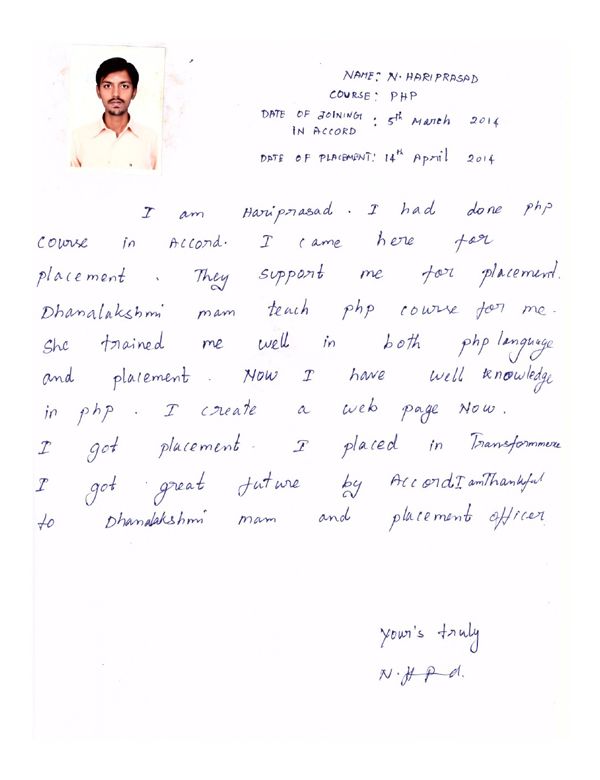 NAME: N. HARIPRASAD
COURSE: PHP
DATE OF JOINING
IN ACCORD : 5th March 2014
DATE OF PLACEMENT: 14th April 2014
I am Hariprasad. I had done php
course in Accord. I came here for
placement. They support me for placement.
Dhanalakshmi mam teach php course for me.
She trained me well in both php language
and placement. Now I have well knowledge
in php. I create a web page Now.
I got placement. I placed in Transformmere
I got great future by Accord I am Thankful
to Dhanalakshmi mam and placement officer
Your's truly